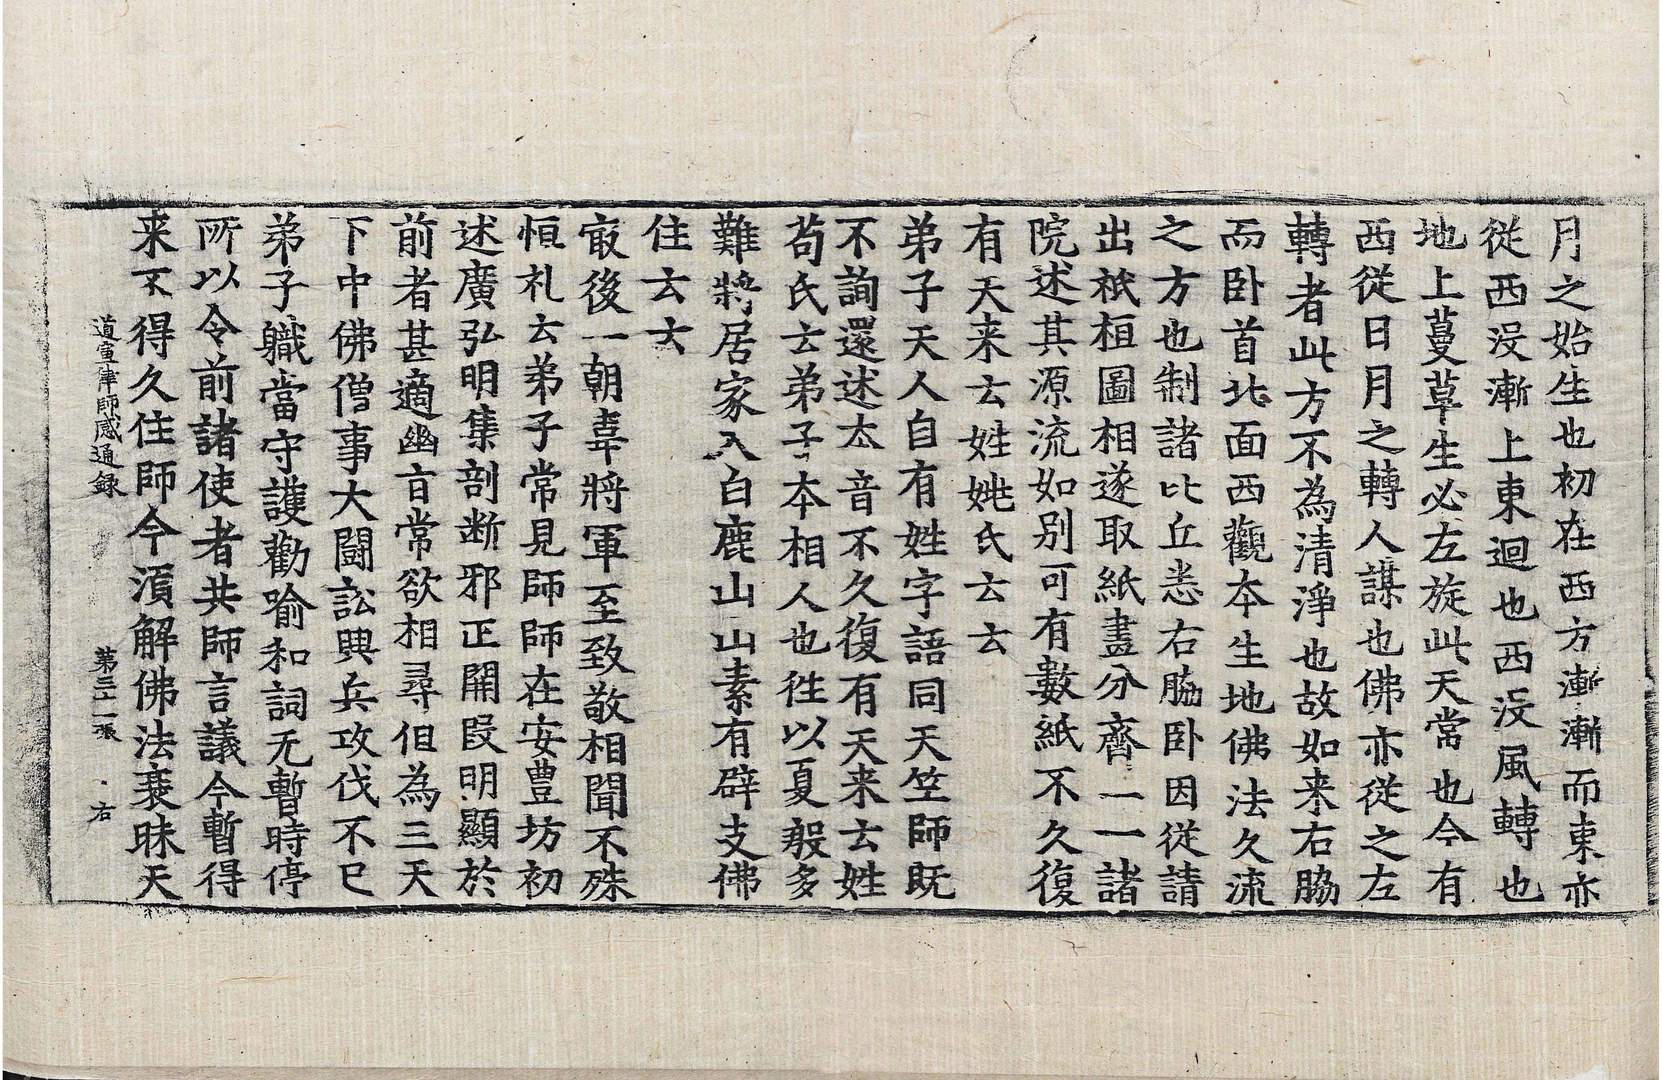 月之始生也初在西方漸漸而東亦
從西没漸上東迴也西没風轉也
地上蔓草生必左旋此天常也今有
西從日月之轉人謀也佛亦從之左
轉者此方不為清淨也故如来右脇
而卧首北面西觀本生地佛法久流
之方也制諸比丘恙右脇卧因從請
出祇桓圖相遂取紙畫分齊一一諸
院述其源流如别可有數紙不久復
有天来云姓姚氏云云
弟子天人自有姓字語同天竺師既
不詢還述本音不久復有天来云姓
苟氏云弟子本相人也徃以夏殷多
難將居家入白鹿山山素有辟支佛
住云云
㝡後一朝韋將軍至致敬相聞不殊
恒礼云弟子常見師師在安豊坊初
述廣弘明集剖断邪正開段明顯於
前者甚適幽旨常欲相尋但為三天
下中佛僧事大鬪訟興兵攻伐不已
弟子職當守護勸喻和詞无暫時停
所以令前諸使者共師言議今暫得
来不得久住師今湏解佛法衰昧天
道宣律師感通録　第三十一張　右